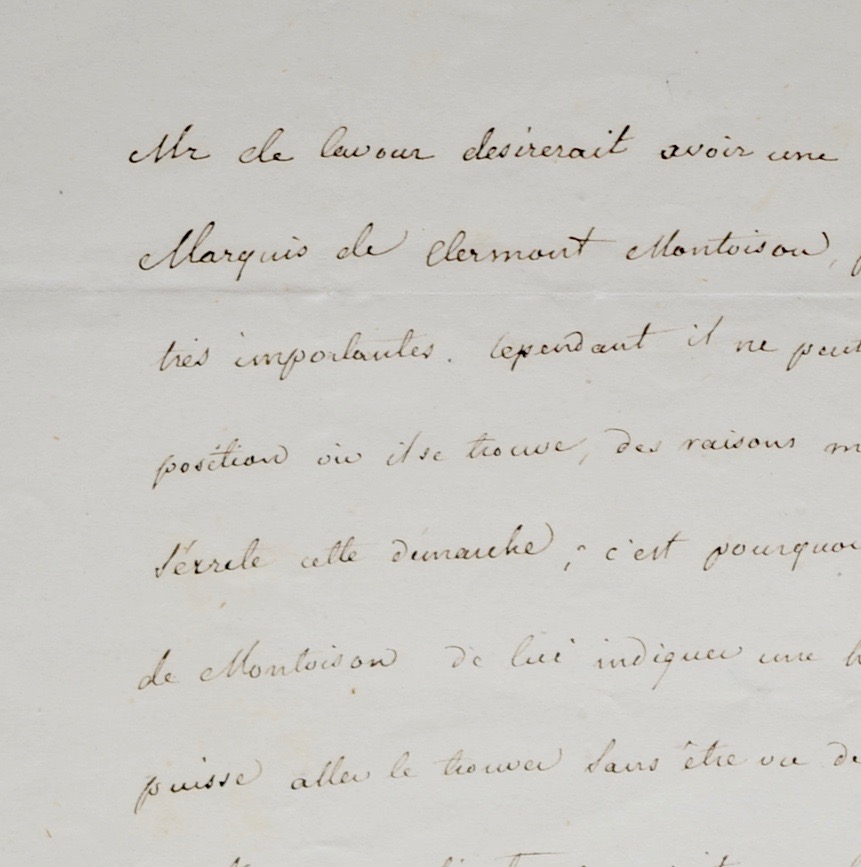 Mr de lavour desirerait avoir une
Marquis de Clermont Montoison,
très importantes. Cependant il ne peut
position où il se trouve, des raisons
cette demarche, c'est pourquoi
de Montoison de lui indiquer une
puisse aller le trouver sans être vu de